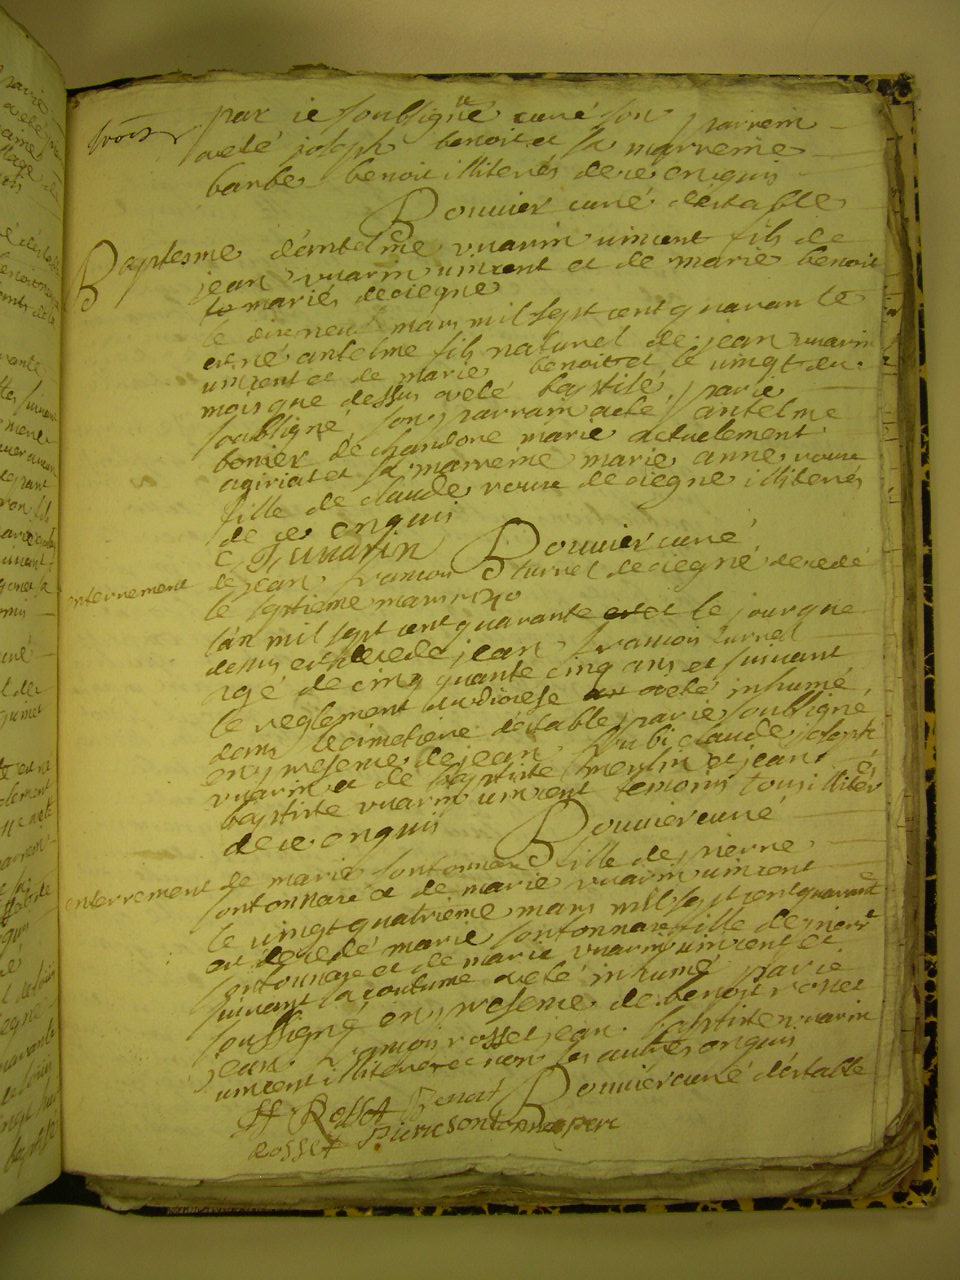 trois
par ie soubsigné curé son parrein
a eté joseph benoit et sa marreine
barbe benoit illiterés de ce enquis
Bouvier curé d'estable
Baptesme d'antelme vuarin vincent fils de
jean vuarin vincent et de marie benoit
mariés de ciegne
le dix neuf mars mil sept cent quarante
est né antelme fils naturel de jean vuarin
vincent et de marie benoit et le vingt du
mois que dessus a eté baptisé par ie
soubsigné son parrain a eté antelme
bonier de chandore marie actuelement
a giriat et sa marreine marie anne
fille de claude de ciegne illiterés
de ce enquis
Bouvier curé
enterrement de jean françois turnel de ciegne decedé
le septieme mars 1740
l'an mil sept cent quarante et le jour que
dessus est decedé jean françois turnel
agé de cinquante cinq ans et suivant
le reglement du diocese a eté inhumé
dans le cimetiere d'estable par ie soubsigné
en presence de jean claude joseph
vuarin et de baptiste merlin et jean
baptiste vuarin vincent temoins tous illiterés
de ce enquis
Bouvier curé
enterrement de marie sontonnax fille de pierre
sontonnax et de marie vuarin vincent
le vingt quatrieme mars mil sept cent quarante
est decedé marie sontonnax fille de pierre
sontonnax et de marie vuarin vincent et
suivant la coutume a eté inhumé par ie
soussigné en presence de benoit rosset
jean françois rosset jean baptiste vuarin
vincent illiteré et non les autres enquis
Bouvier curé d'estable
JF Rosset Benoit
Rosset Pierre sontonnax pere